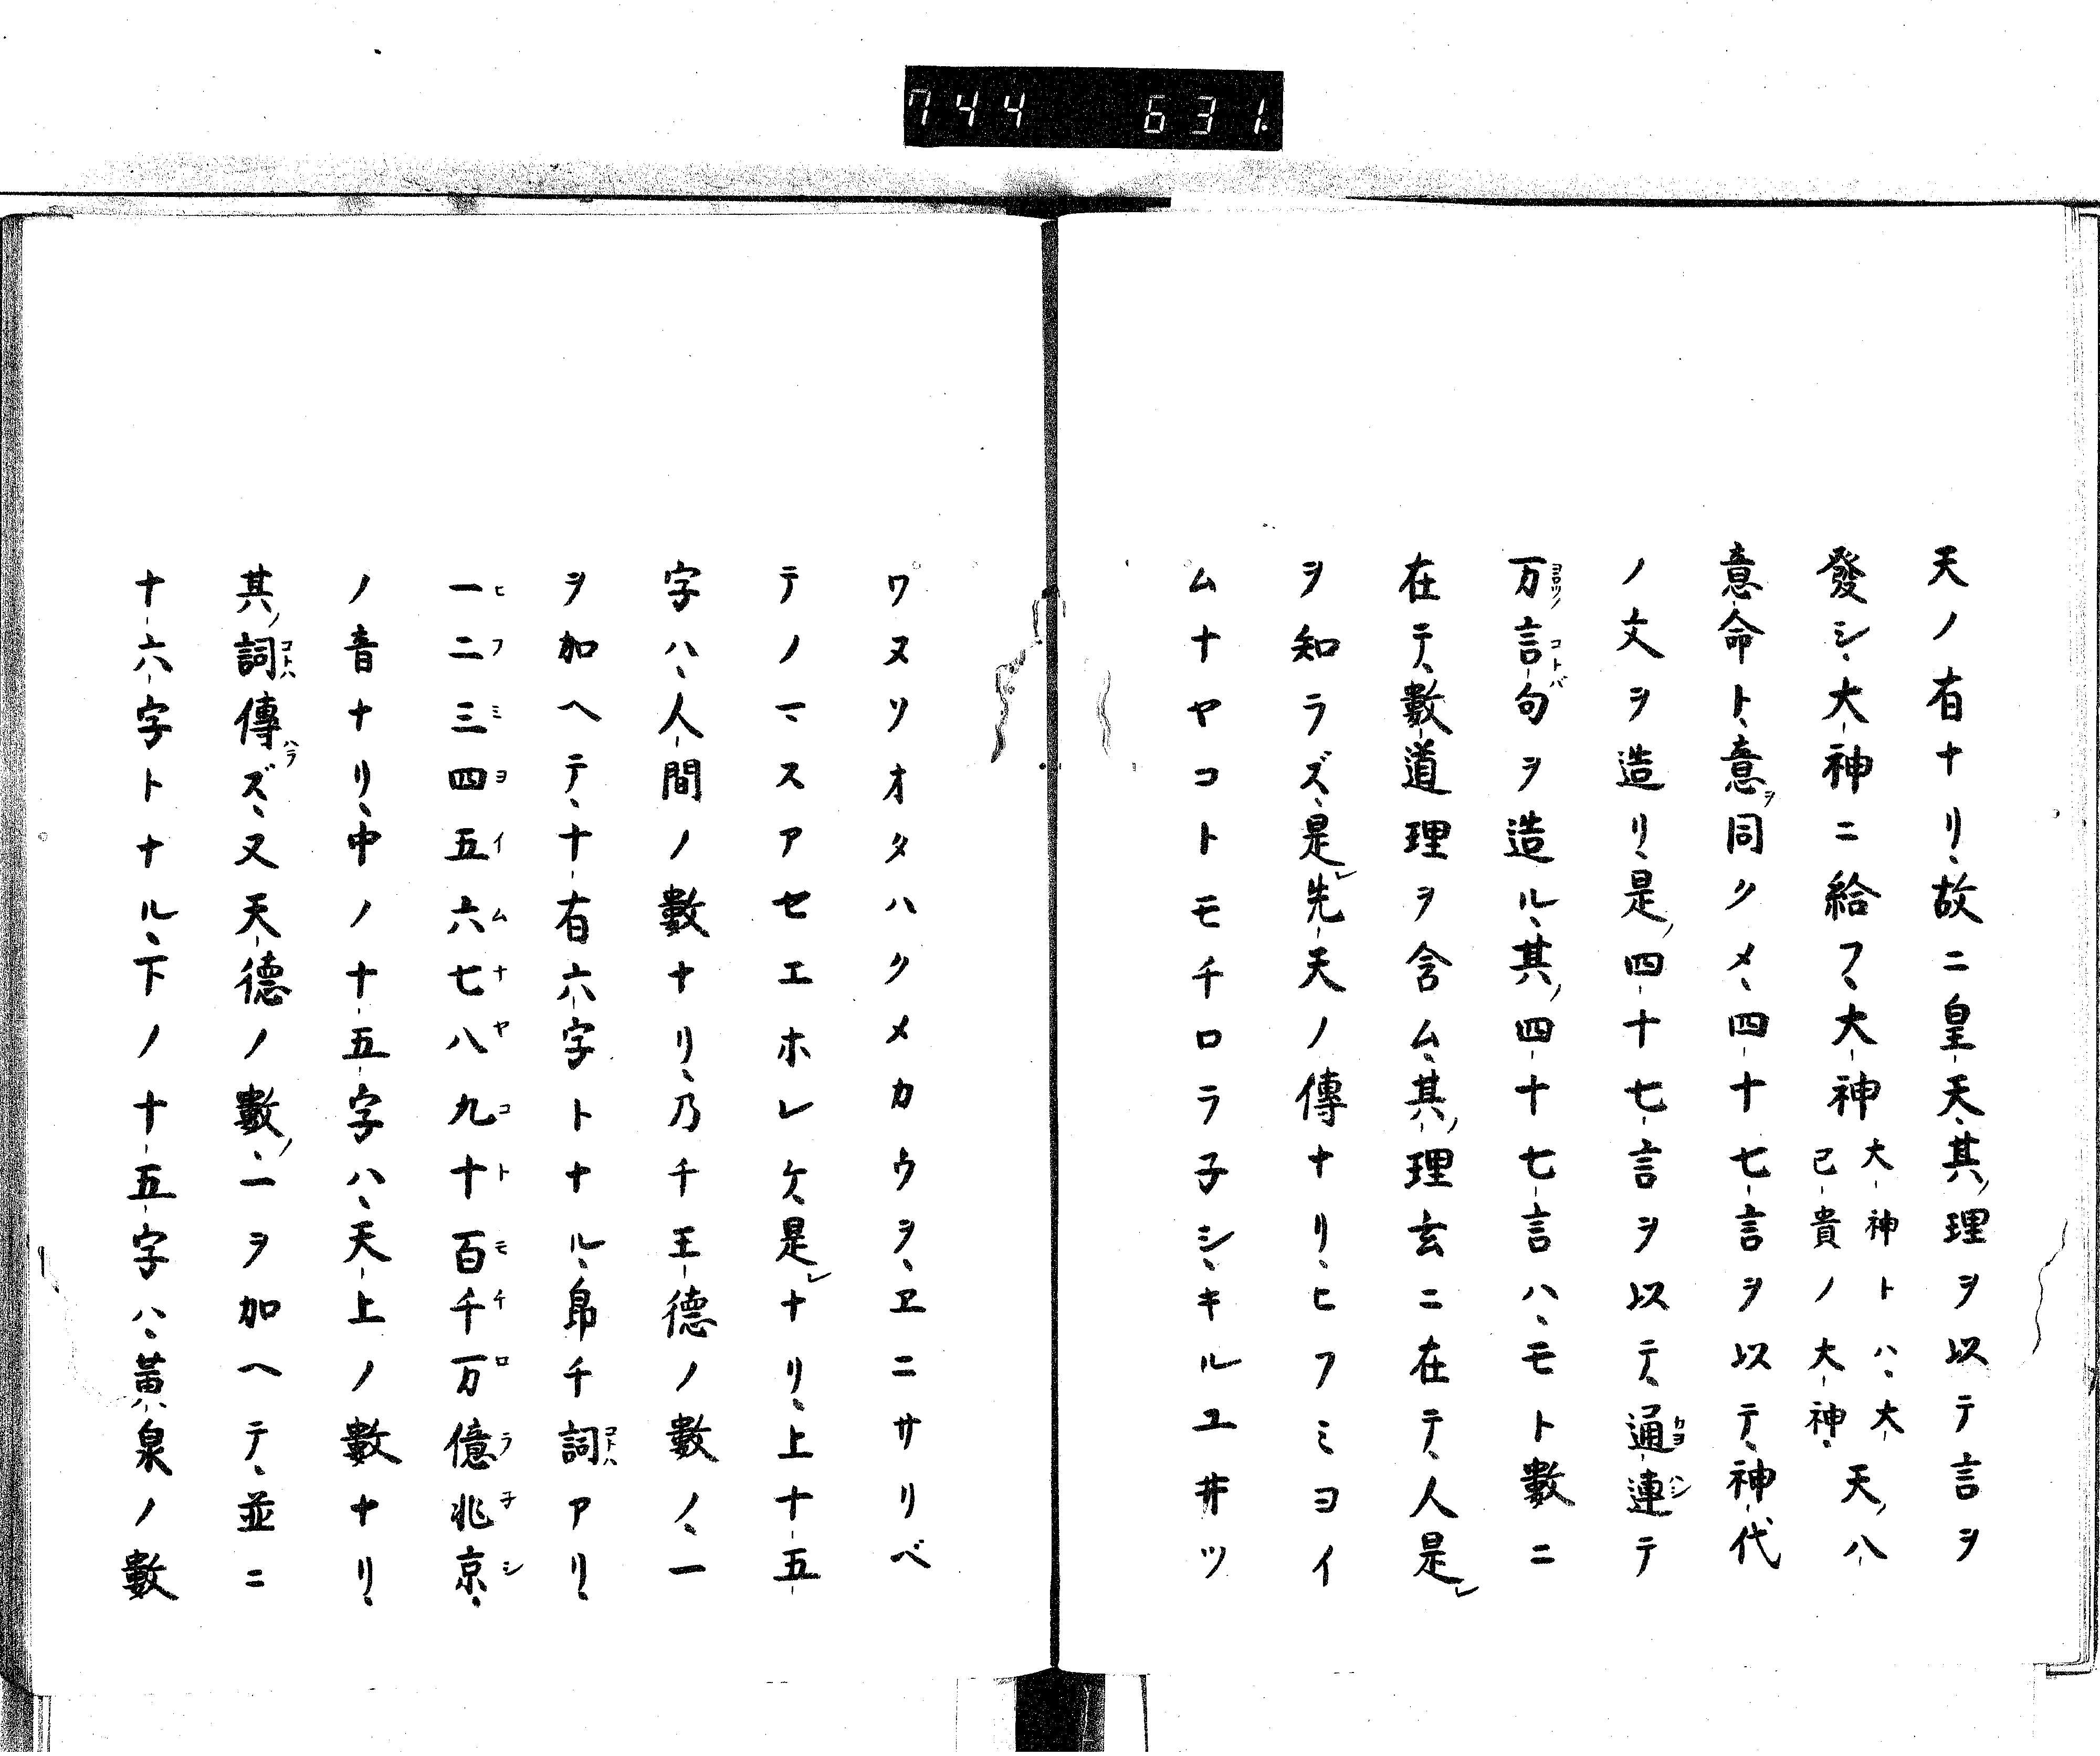 744 631
天ノ有ナリ、故ニ皇天、其ノ理ヲ以テ言ヲ
發シ、大神ニ給フ、大神大神トハ、大己貴ノ大神、天ノ八
意命ト、意ヲ同クメ、四十七言ヲ以テ、神代
ノ文ヲ造リ、是ノ四十七言ヲ以テ、通連テ
万言句ヲ造ル、其ノ四十七言ハ、モト數ニ
在テ、數道理ヲ含ム、其ノ理玄ニ在テ、人是レ
ヲ知ラズ、是レ先天ノ傳ナリ、ヒフミヨイ
ムナヤコトモチロラ子シ、キルユ井ツ
ワヌソオタハクメカウヲ、ヱニサリベ
テノマスアセエホレケ、是レナリ、上十五
字ハ、人間ノ數ナリ、乃チ王德ノ數ノ、一
ヲ加ヘテ、十有六字トナル、帛チ詞アリ、
一二三四五六七八九十百千万億兆京、
ノ音ナリ、中ノ十五字ハ、天上ノ數ナリ、
其ノ詞傳ハラズ、又天德ノ數ノ、一ヲ加ヘテ、並ニ
十六字トナル、下ノ十五字ハ、黃泉ノ數